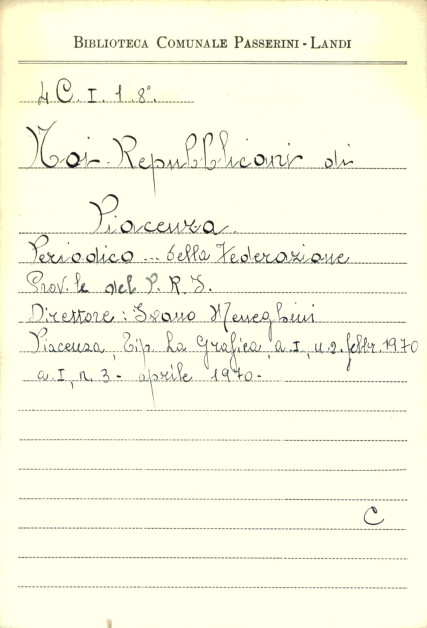 BIBLIOTECA COMUNALE PASSERINI - LANDI
4 C. I. 1. 8°.
Noi Repubblicani di
Piacenza.
Periodico ... della Federazione
Prov.le del P. R. I.
Direttore: Ivano Meneghini
Piacenza, Tip. La Grafica, a. I, n. 2. febbr. 1970
a. I, n. 3 - aprile 1970 -
C